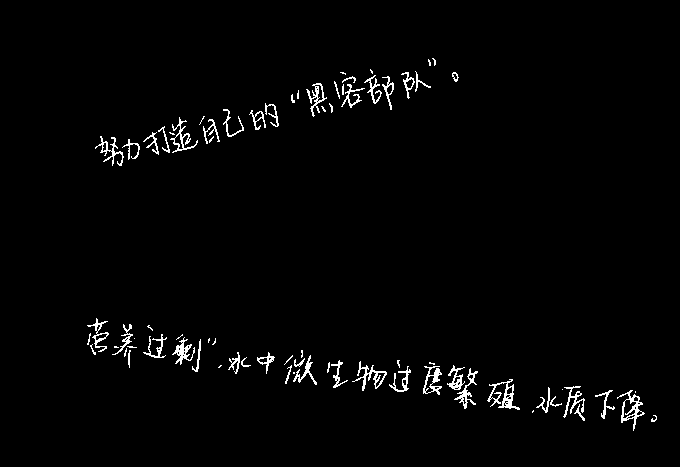 努力打造自己的“黑客部队”。
营养过剩”,水中微生物过度繁殖,水质下降。